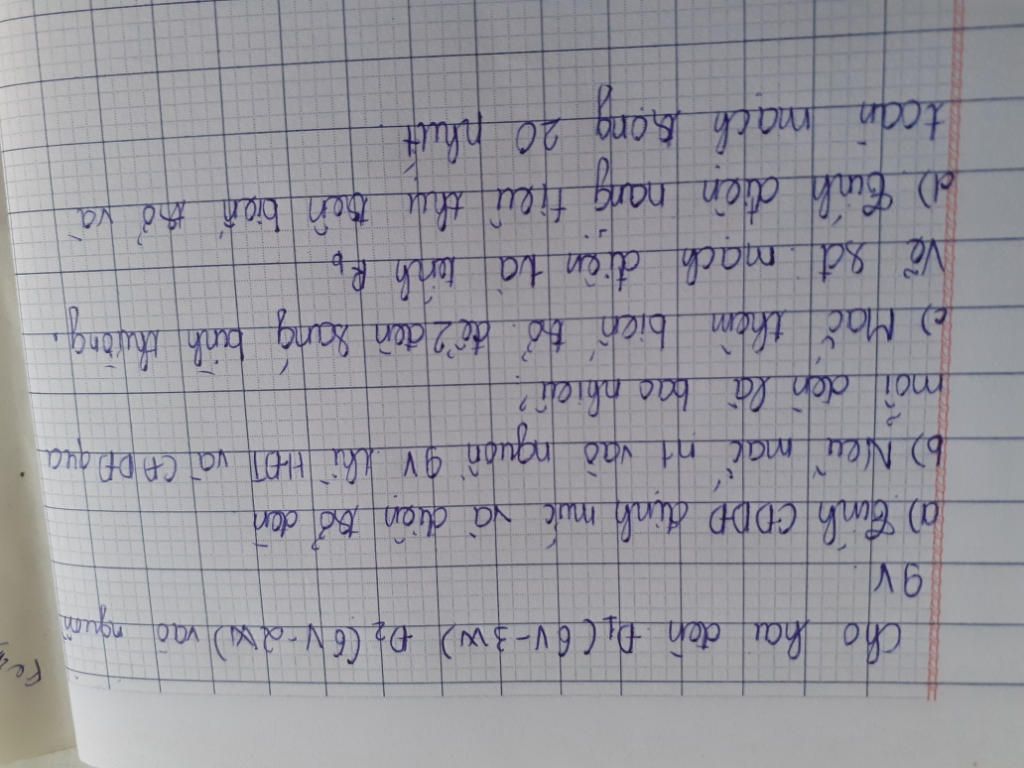 Cho hai đèn Đ₁ (6V-3W) Đ₂ (6V-2W) vào nguồn
9V
a) Tính CĐDĐ định mức và điện trở đèn
b) Nếu mắc nt vào nguồn 9V thì HĐT và CĐDĐ qua
mỗi đèn là bao nhiêu?
c) Mắc thêm biến trở để 2 đèn sáng bình thường.
Vẽ sđ mạch điện và tính Rb
d) Tính điện năng tiêu thụ trên biến trở và
toàn mạch trong 20 phút